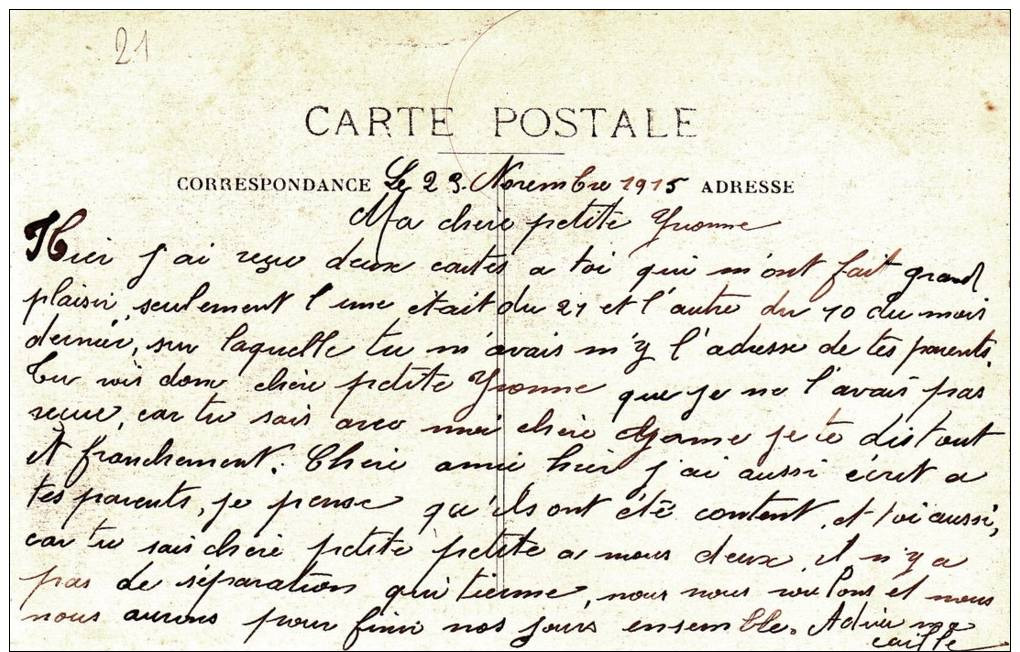 21
CARTE POSTALE
CORRESPONDANCE Le 23 Novembre 1915 ADRESSE
Ma chère petite Yvonne
Hier j'ai reçu deux cartes a toi qui m'ont fait grand
plaisir, seulement l'une était du 21 et l'autre du 10 du mois
dernier, sur laquelle tu m'avais m'y l'adresse de tes parents.
Tu vois donc chère petite Yvonne que je ne l'avais pas
reçue, car tu sais avec moi chère Yvonne je te dis tout
et franchement. Chère amie hier j'ai aussi écrit a
tes parents, je pense qu'ils ont été content, et toi aussi,
car tu sais chère petite petite a nous deux, il n'y a
pas de séparation qui tienne, nous nous voulons et nous
nous aurons pour finir nos jours ensemble. Adieu ma
caille